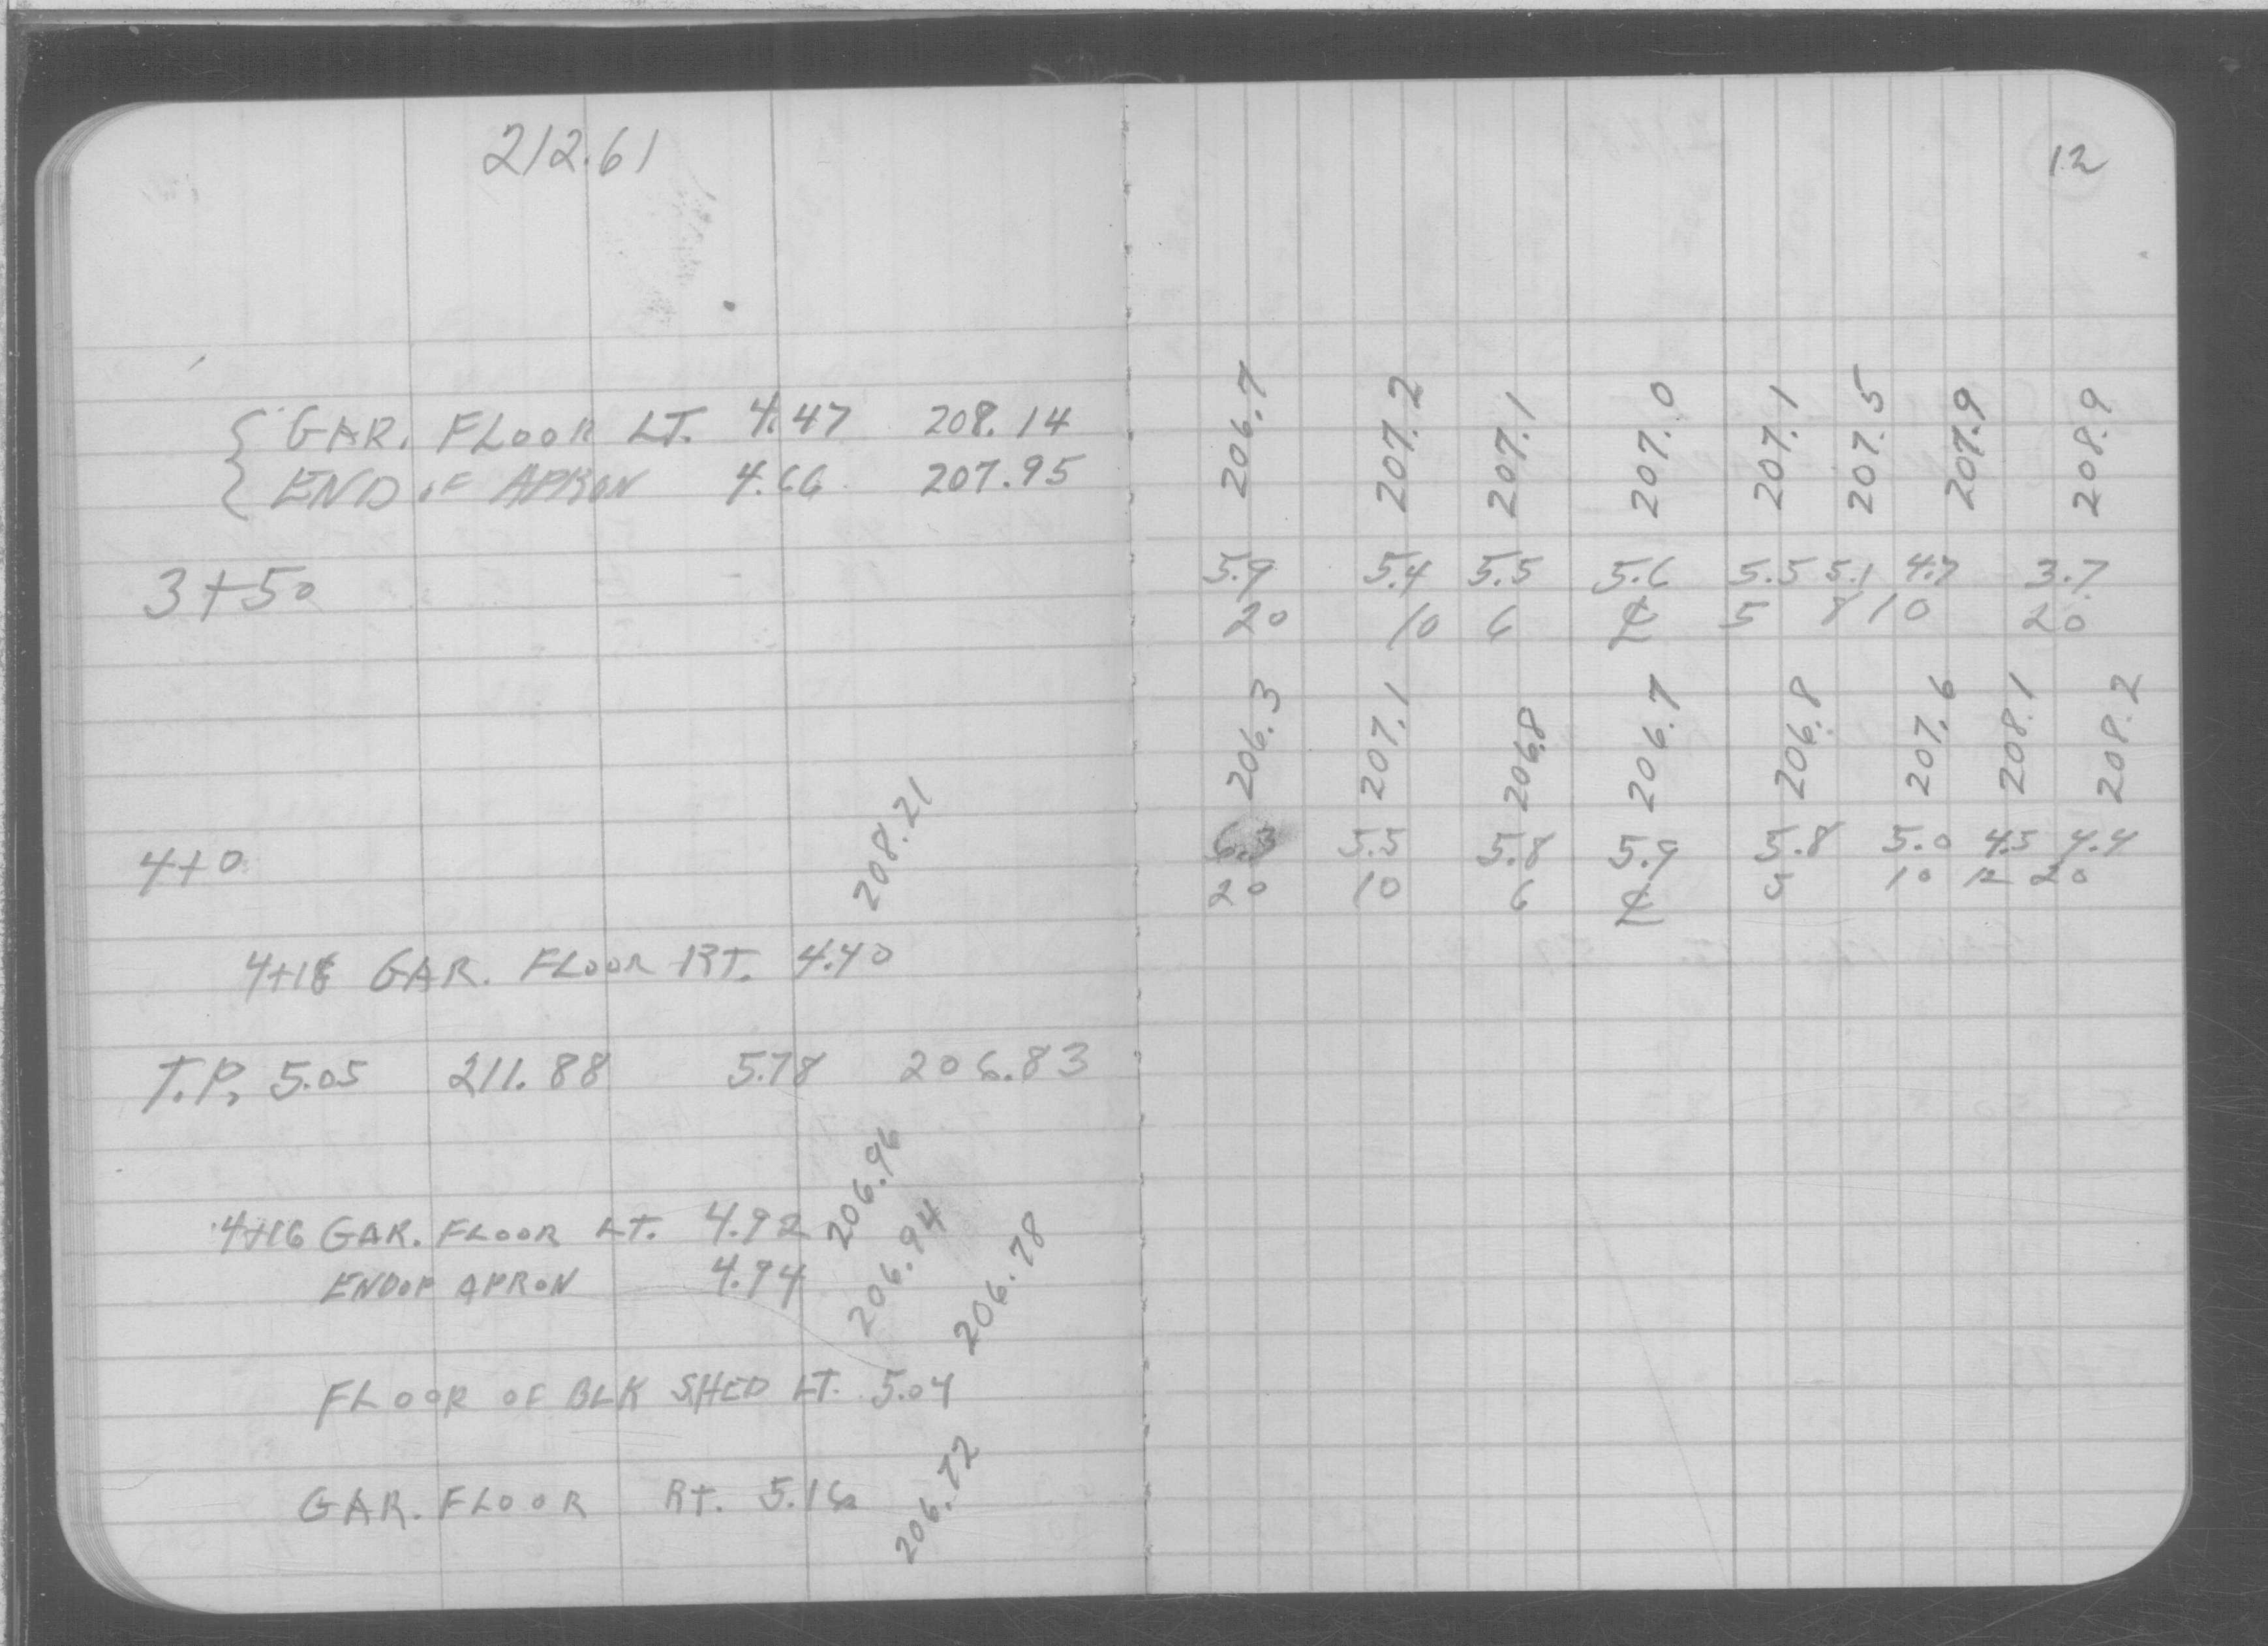 212.61
GAR. FLOOR LT. 4.47 208.14
END OF APRON 4.66 207.95
3+50
208.21
4+0
4+18 GAR. FLOOR RT. 4.40
T.P. 5.05 211.88 5.78 206.83
206.96
4+16 GAR. FLOOR LT. 4.92
206.94
END OF APRON 4.94
206.78
FLOOR OF BLK SHED LT. 5.04
206.72
GAR. FLOOR RT. 5.16
12
206.7 207.2 207.1 207.0 207.1 207.5 207.9 208.9
5.9 5.4 5.5 5.6 5.5 5.1 4.7 3.7
20 10 6 ℄ 5 8 10 20
206.3 207.1 206.8 206.7 206.8 207.6 208.1 208.2
6.3 5.5 5.8 5.9 5.8 5.0 4.5 4.4
20 10 6 ℄ 10 12 20